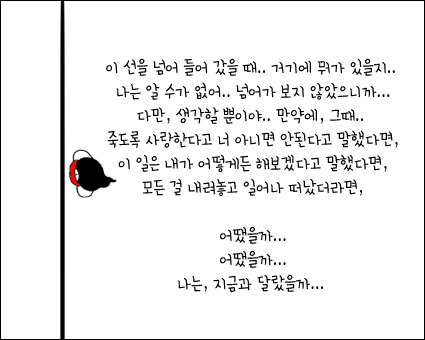 이 선을 넘어 들어 갔을 때.. 거기에 뭐가 있을지..
나는 알 수가 없어.. 넘어가 보지 않았으니까...
다만, 생각할 뿐이야.. 만약에, 그때..
죽도록 사랑한다고 너 아니면 안된다고 말했다면,
이 일은 내가 어떻게든 해보겠다고 말했다면,
모든 걸 내려놓고 일어나 떠났더라면,
어땠을까...
어땠을까...
나는, 지금과 달랐을까...